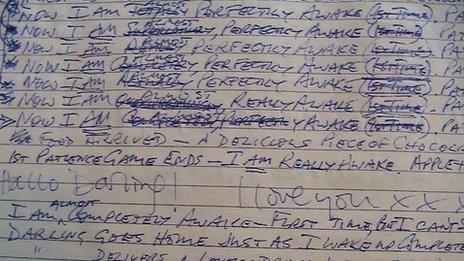 NOW I AM ALMOST PERFECTLY AWAKE (1ST TIME). PA
NOW I AM ALMOST PERFECTLY AWAKE (1ST TIME). PAT
NOW I AM ALMOST PERFECTLY AWAKE (1ST TIME). PAT
NOW I AM ALMOST PERFECTLY AWAKE (1ST TIME). PAT
NOW I AM ALMOST PERFECTLY AWAKE (1ST TIME). PAT
NOW I AM ALMOST REALLY AWAKE (1ST TIME). PAT
NOW I AM ALMOST PERFECTLY AWAKE (1ST TIME). PAT
FOOD ARRIVED – A DELICIOUS PIECE OF CHOCOL
1ST PATIENCE GAME ENDS – I AM REALLY AWAKE. APPLET
Hallo Darling! I love you xxx
I AM ALMOST COMPLETELY AWAKE – FIRST TIME, BUT I CAN'T
DARLING GOES HOME JUST AS I WAKE UP COMPLETE
" DELIVERS A